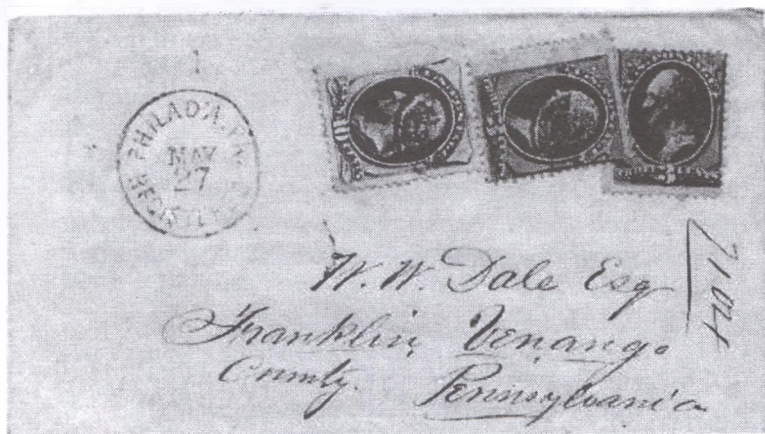 PHILAD'A. PA.
MAY
27
THREE CENTS
W. W. Dale Esq
Franklin, Venango
County. Pennsylvania